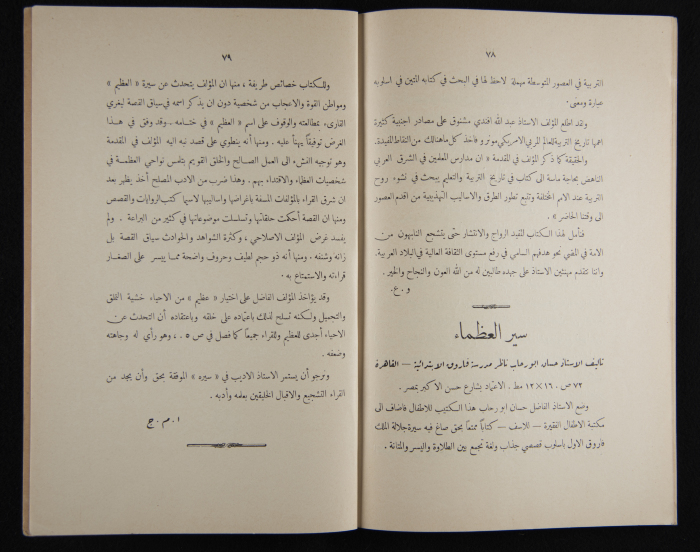 ٧٨
التربية في العصور المتوسطة مهملة لاحظ لها في البحث في كتابه المتين في اسلوبه
عبارة ومعنى.
ولقد اطلع المؤلف الاستاذ عبد الله افندي مشنوق على مصادر اجنبية كثيرة
اهمها تاريخ التربية للعالم المربي الامريكي مونرو فأخذ كل ما هنالك من النقاط المفيدة.
والحقيقة كما ذكر المؤلف في المقدمة « ان مدارس المعلمين في الشرق العربي
الناهض بحاجة ماسة الى كتاب في تاريخ التربية والتعليم يبحث في نشوء روح
التربية عند الامم المختلفة وتتبع تطور الطرق والاساليب التهذيبية من اقدم العصور
الى وقتنا الحاضر » .
فنأمل لهذا الكتاب المفيد الرواج والانتشار حتى يتشجع النابهون من
الامة في المضي نحو هدفهم السامي في رفع مستوى الثقافة العالية في البلاد العربية.
واننا نتقدم مهنئين الاستاذ على جيده طالبين له من الله العون والنجاح والخير.
و . ع.
سير العظماء
تأليف الاستاذ حسان ابو رحاب ناظر مدرسة فاروق الابتدائية — القاهرة
٧٢ ص . ١٦ × ١٢ مط . الاعتماد بشارع حسن الاكبر بمصر .
وضع الاستاذ الفاضل حسان ابو رحاب هذا الكتيب للاطفال فاضاف الى
مكتبة الاطفال الفقيرة — للاسف — كتاباً ممتعاً بحق صاغ فيه سيرة جلالة الملك
فاروق الاول باسلوب قصصي جذاب ولغة تجمع بين الطلاوة واليسر والمتانة .
٧٩
وللكتاب خصائص طريفة ، منها ان المؤلف يتحدث عن سيرة « العظيم »
ومواطن القوة والاعجاب من شخصية دون ان يذكر اسمه في سياق القصة ليغري
القارىء بمطالعته والوقوف على اسم « العظيم » في ختامه . وقد وفق في هذا
الغرض توفيقاً يهنأ عليه . ومنها أنه ينطوي على قصد نبه اليه المؤلف في المقدمة
وهو توجيه النشء الى العمل الصالح والخلق القويم بتلمس نواحي العظمة في
شخصيات العظماء والاقتداء بهم . وهذا ضرب من الادب المصلح أخذ يظهر بعد
ان شرق القراء بالمؤلفات المسفة باغراضها واساليبها لاسيما كتب الروايات والقصص
ومنها ان القصة أحكمت حلقاتها وتسلسلت موضوعاتها في كثير من البراعة . ولم
يفسد غرض المؤلف الاصلاحي ، وكثرة الشواهد والحوادث سياق القصة بل
زانه وشنفه . ومنها أنه ذو حجم لطيف وحروف واضحة مما ييسر على الصغار
قراءته والاستمتاع به .
وقد يؤاخذ المؤلف الفاضل على اختيار « عظيم » من الاحياء خشية التملق
والتجميل ولكنه تسلح لذلك باعتماده على خلقه وباعتقاده أن التحدث عن
الاحياء أجدى للعظيم وللقراء جميعاً كما فصل في ص ٥ . ، وهو رأي له وجاهته
وضعفه .
ونرجو أن يستمر الاستاذ الاديب في « سيره » الموفقة بحق وأن يجد من
القراء التشجيع والاقبال الخليقين بعلمه وأدبه .
ا . م . ح